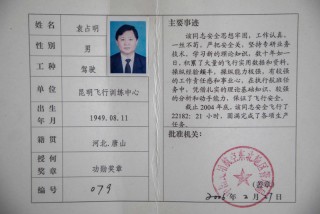 姓名 袁占明
性别 男
工种 驾驶
单位 昆明飞行训练中心
出生年月 1949.08.11
籍贯 河北.唐山
授何奖章 功勋奖章
编号 079
主要事迹
该同志安全思想牢固,工作认真,
一丝不苟,严把安全关,坚持专研业务技
术,学习新的理论知识,数十年如一
日,积累了大量的飞行实用数据和资料,
操纵经验颇丰,操纵能力极强,有较强
的工作责任感和事业心,在执行航班任
务中,凭借扎实的理论基础知识,较强
的分析和动手能力,保证了飞行安全。
截止2004年底,该同志安全飞行了
22182:21小时,圆满完成了各项生产
任务。
批准机关:
(盖章)
2006年2月27日